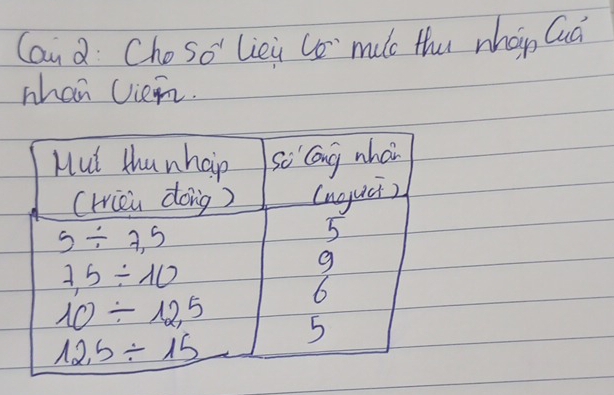 Câu 2: Cho số liệu về mức thu nhập của
nhân viên.
Mức thu nhập số công nhân
(triệu đồng) (người)
5 ÷ 7,5 5
7,5 ÷ 10 9
10 ÷ 12,5 6
12,5 ÷ 15 5